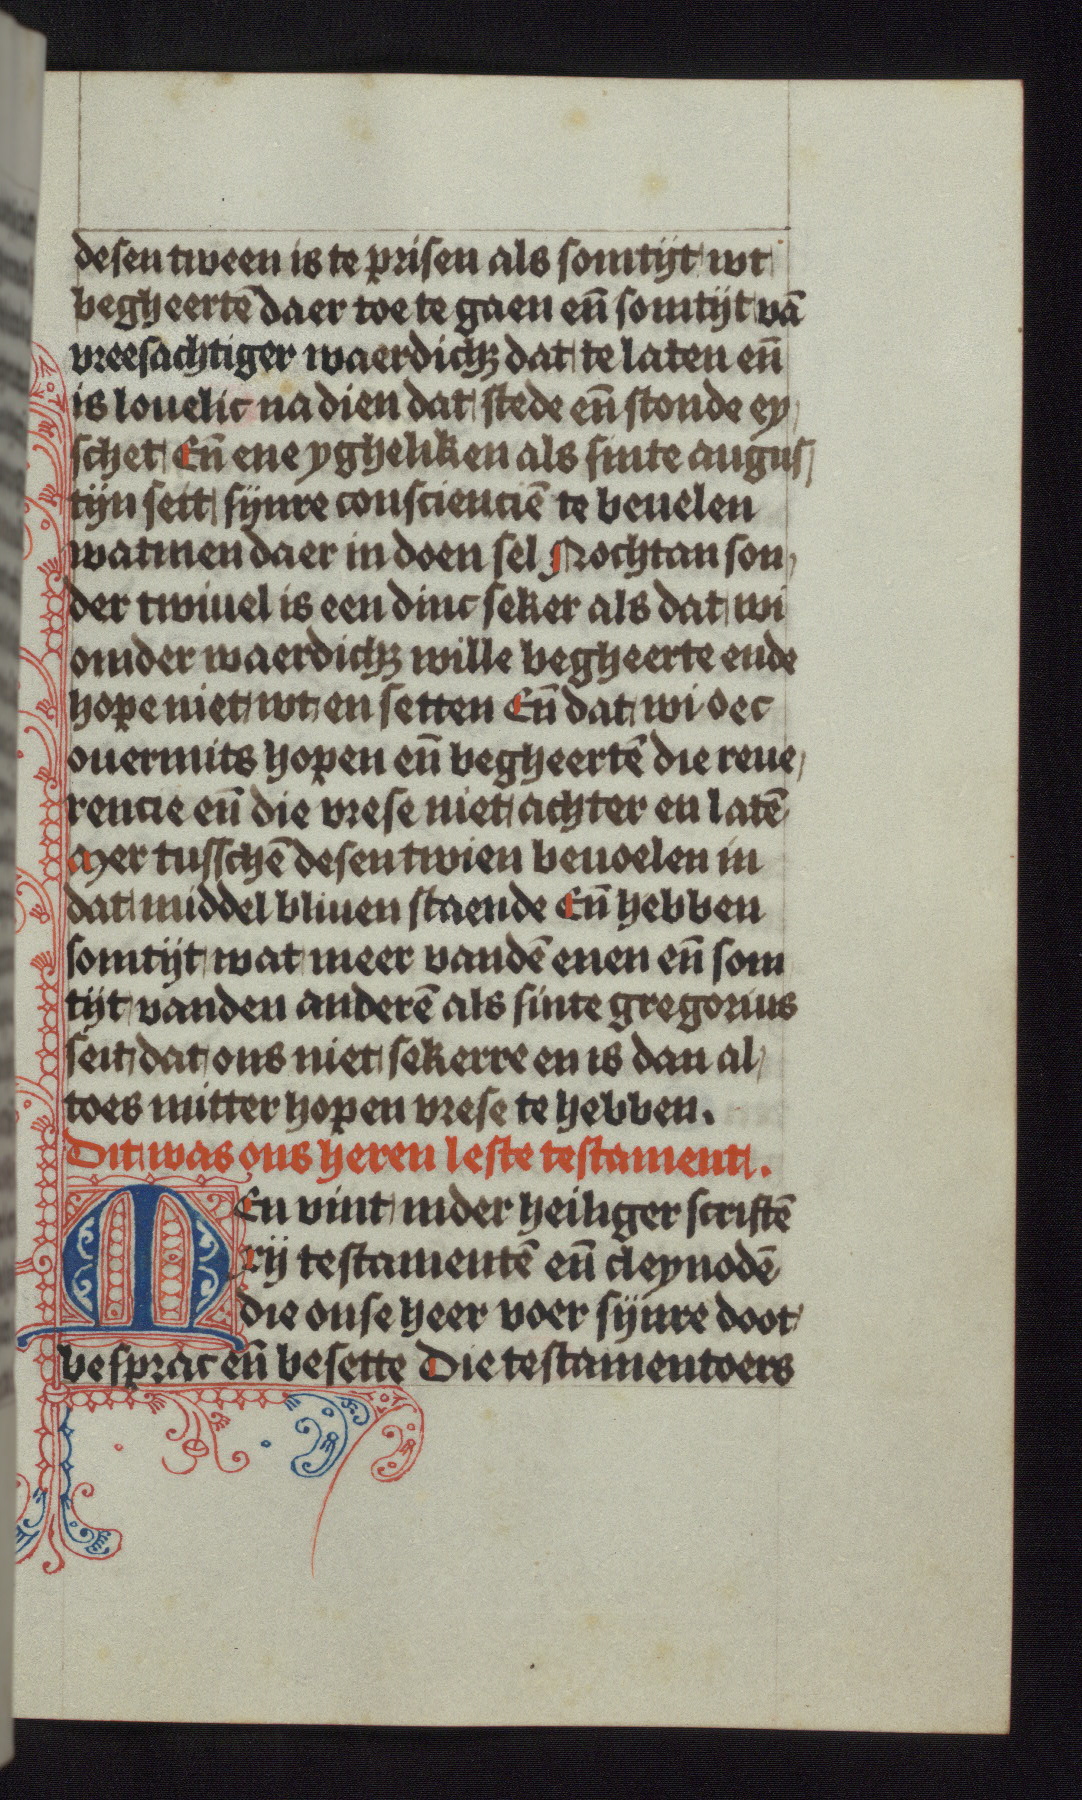 desen tween is te prisen als somtijt wt
begheertē daer toe te gaen en̄ somtijt vā
vreesachtiger waerdichꝫ dat te laten en̄
is louelic na dien dat stede en̄ stonde ey
schet En̄ ene ygheliken als sinte augus
tijn seit sijnre conscienciē te beuelen
watmen daer in doen sel Nochtan son
der twiuel is een dinc seker als dat wi
omder waerdichꝫ wille begheerte ende
hope niet wt en setten En̄ dat wi oec
ouermits hopen en̄ begheertē die reue
rencie en̄ die vrese niet achter en latē
Mer tusschē desen twien beuoelen in
dat middel bliuen staende En̄ hebben
somtijt wat meer vandē enen en̄ som
tijt vanden anderē als sinte gregorius
seit dat ons niet sekerre en is dan al
toes mitter hopen vrese te hebben.
Dit was ons heren leste testament.
MEn vint inder heiliger scriftē
xij testamentē en̄ cleynodē
die onse heer voer sijnre doot
besprac en̄ besette Die testamentoers